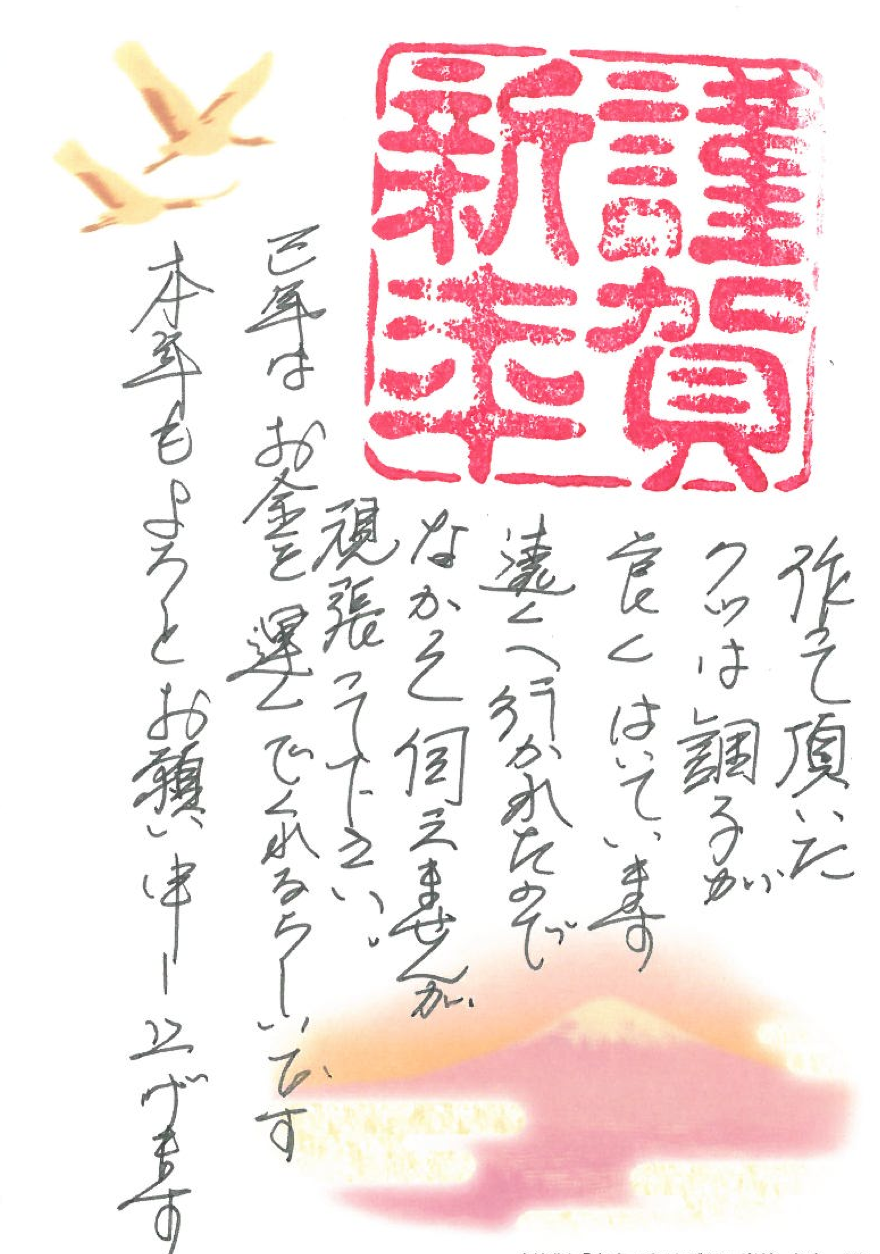 謹賀
新年
作って頂いた
クツは調子が
良くはいています
遠くへ行かれたので
なかなか伺えませんが
頑張って下さい。
巳年はお金を運んでくれるらしいです
本年もよろしくお願い申し上げます